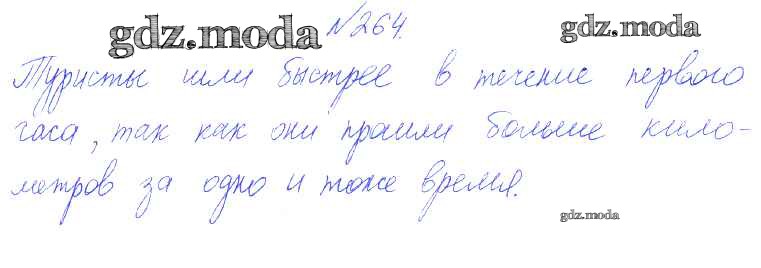 gdz.moda №264. gdz.moda
Туристы шли быстрее в течение первого
часа, так как они прошли больше кило-
метров за одно и тоже время.
gdz.moda